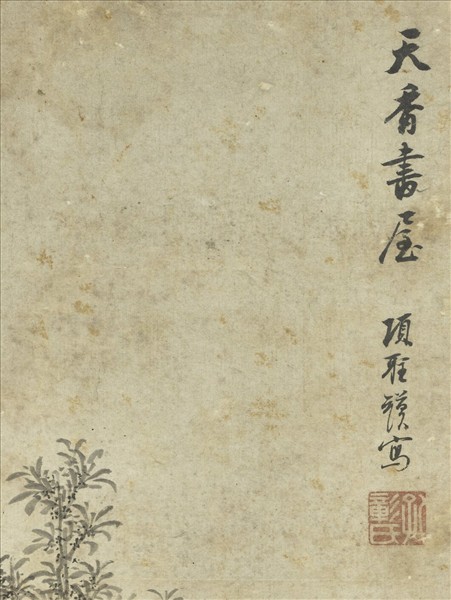 天香書屋
項聖謨寫